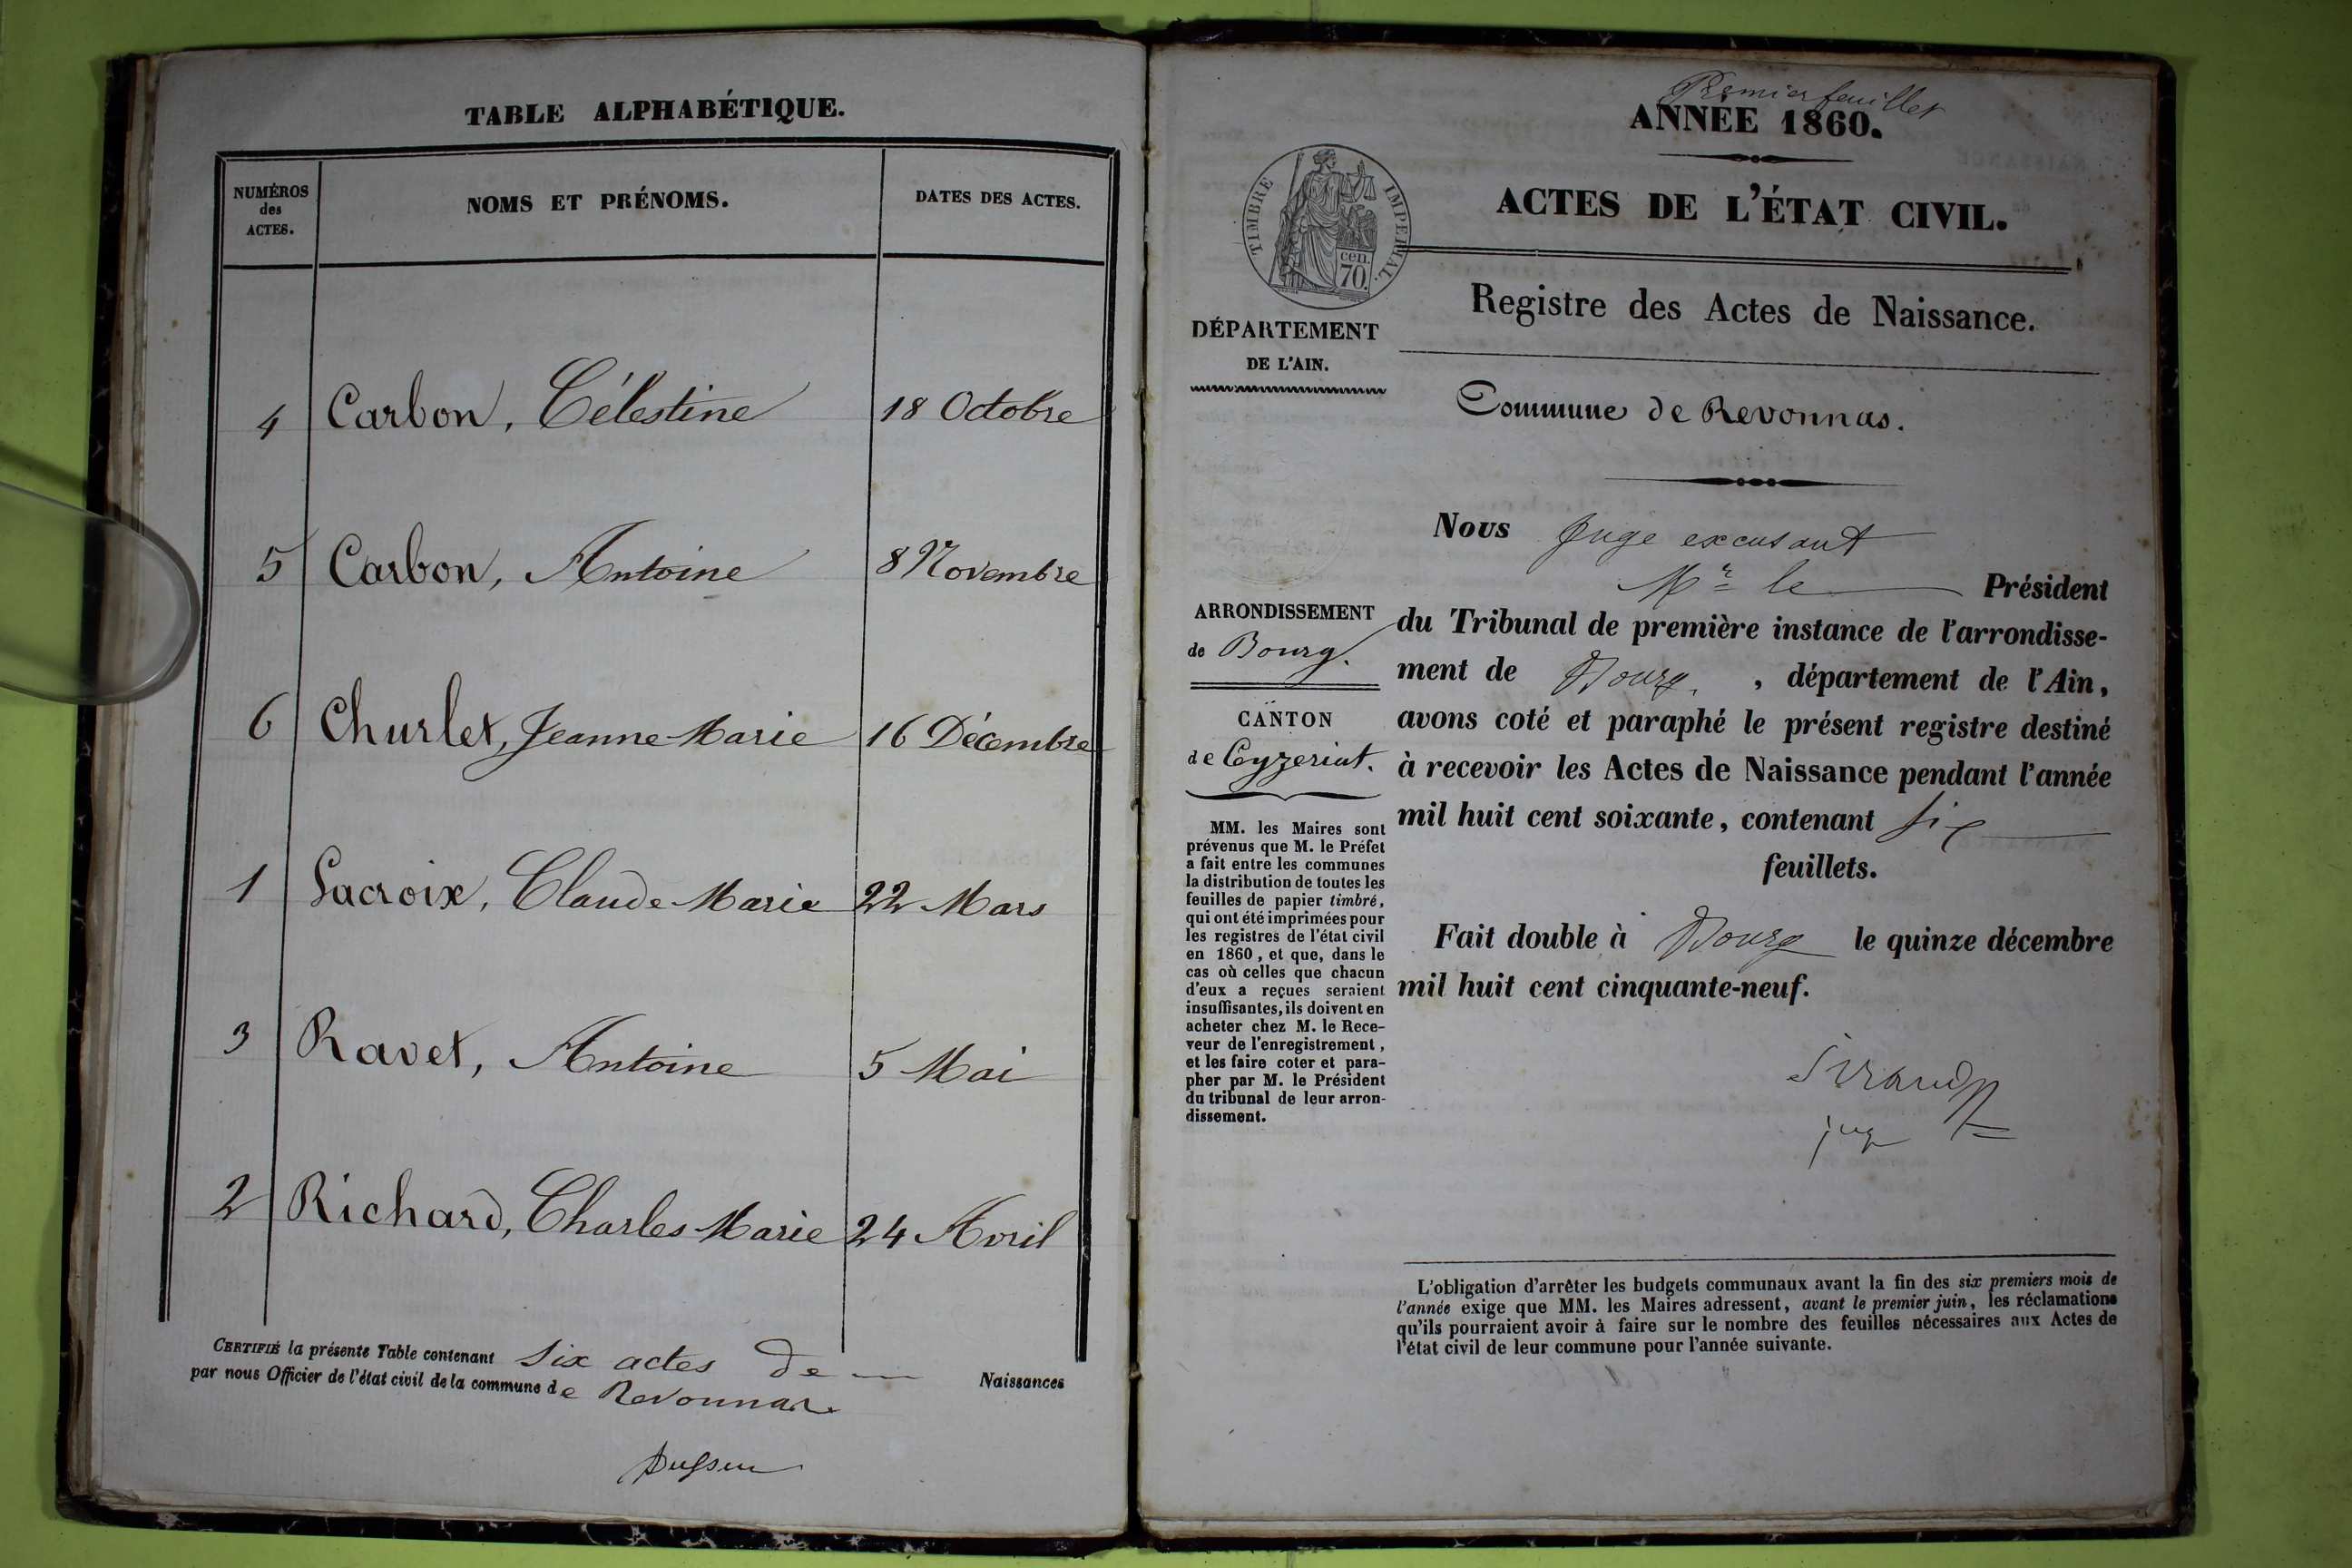 TABLE ALPHABÉTIQUE.
NUMÉROS
des
ACTES.
NOMS ET PRÉNOMS.
DATES DES ACTES.
4 Carbon, Célestine 18 Octobre
5 Carbon, Antoine 8 Novembre
6 Churlet, Jeanne Marie 16 Décembre
1 Lacroix, Claude Marie 22 Mars
3 Ravet, Antoine 5 Mai
2 Richard, Charles Marie 24 Avril
CERTIFIÉ la présente Table contenant Six actes de Naissances
par nous Officier de l'état civil de la commune de Revonnas
Premier feuillet
ANNÉE 1860.
ACTES DE L'ÉTAT CIVIL.
TIMBRE IMPERIAL.
cen.
70.
Registre des Actes de Naissance.
DÉPARTEMENT
DE L'AIN.
Commune de Revonnas.
ARRONDISSEMENT
de Bourg.
CANTON
de Ceyzeriat.
MM. les Maires sont
prévenus que M. le Préfet
a fait entre les communes
la distribution de toutes les
feuilles de papier timbré,
qui ont été imprimées pour
les registres de l'état civil
en 1860, et que, dans le
cas où celles que chacun
d'eux a reçues seraient
insuffisantes, ils doivent en
acheter chez M. le Rece-
veur de l'enregistrement,
et les faire coter et para-
pher par M. le Président
du tribunal de leur arron-
dissement.
Nous Juge excusant
Mr le Président
du Tribunal de première instance de l'arrondisse-
ment de Bourg. , département de l'Ain,
avons coté et paraphé le présent registre destiné
à recevoir les Actes de Naissance pendant l'année
mil huit cent soixante, contenant six
feuillets.
Fait double à Bourg le quinze décembre
mil huit cent cinquante-neuf.
Sirand
juge
L'obligation d'arrêter les budgets communaux avant la fin des six premiers mois de
l'année exige que MM. les Maires adressent, avant le premier juin, les réclamations
qu'ils pourraient avoir à faire sur le nombre des feuilles nécessaires aux Actes de
l'état civil de leur commune pour l'année suivante.